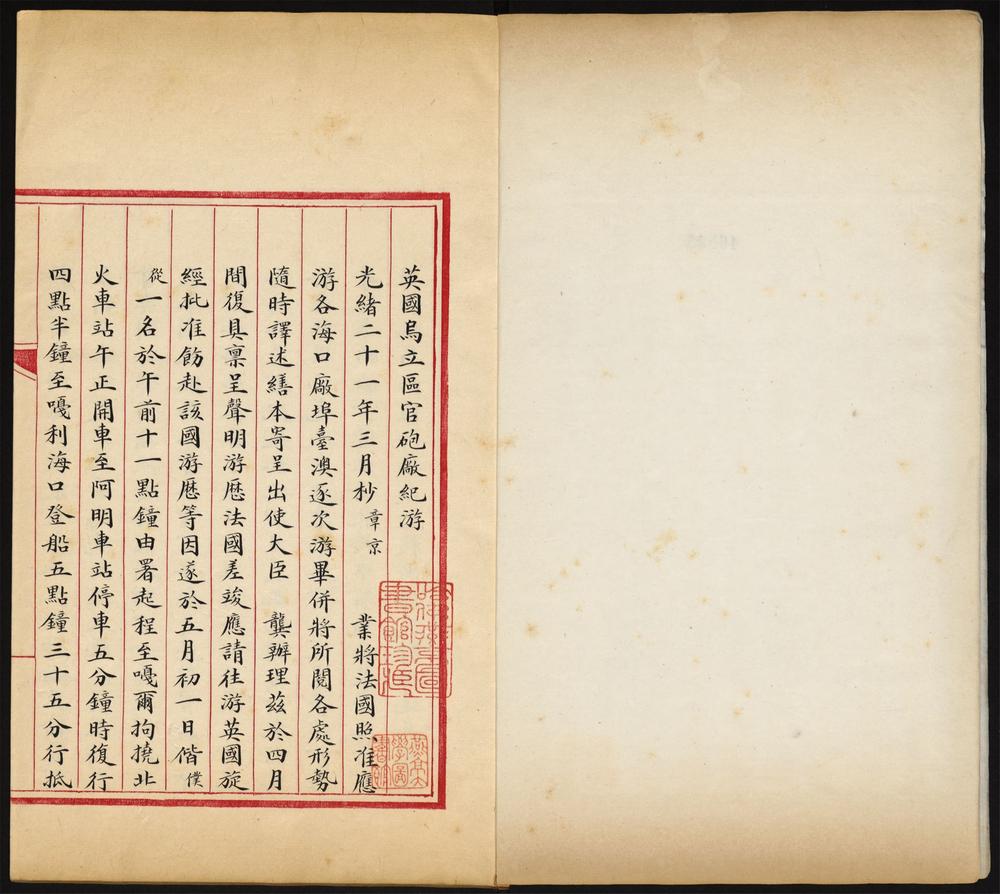 英國烏立區官砲廠紀游
光緒二十一年三月杪章京 業將法國照准應
游各海口廠埠臺澳逐次游畢併將所閱各處形勢
隨時譯述繕本寄呈出使大臣 龔辦理茲於四月
間復具稟呈聲明游歷法國差竣應請往游英國旋
經批准飭赴該國游歷等因遂於五月初一日偕僕
從一名於午前十一點鐘由署起程至嘎爾拘撓北
火車站午正開車至阿明車站停車五分鐘時復行
四點半鐘至嘎利海口登船五點鐘三十五分行抵
燕京大學圖書館